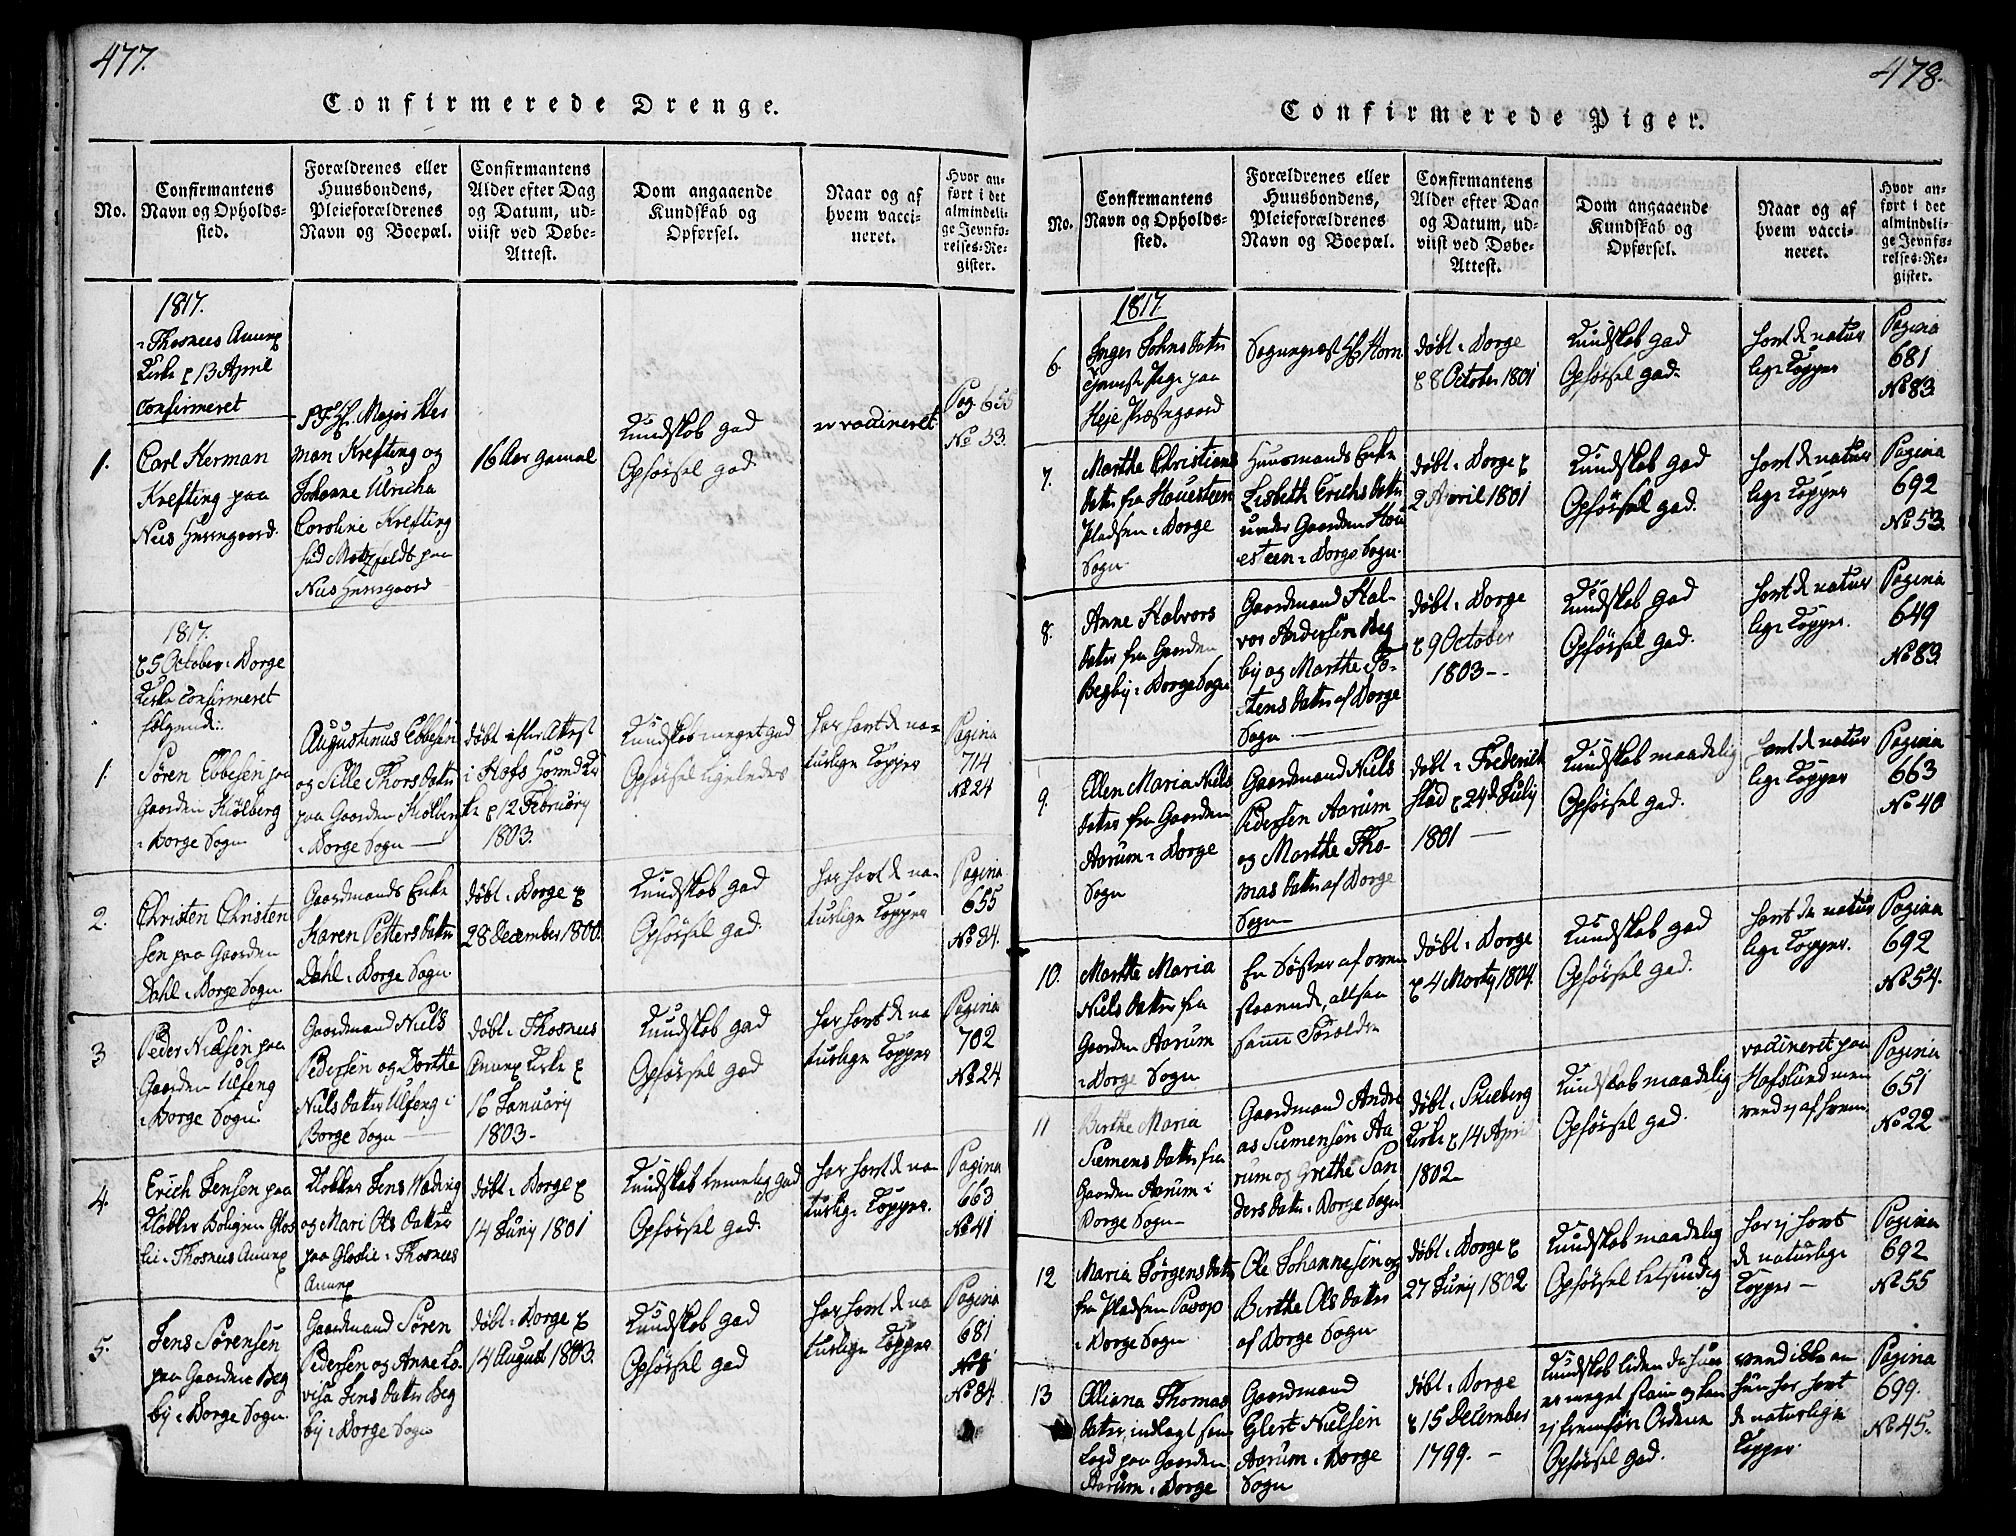 477.
Confirmerede Drenge.
No.
Confirmantens
Navn og Opholds-
sted.
Forældrenes eller
Huusbondens,
Pleieforældrenes
Navn og Boepæl.
Confirmantens
Alder efter Dag
og Datum, ud-
viist ved Døbe-
Attest.
Dom angaaende
Kundskab og
Opførsel.
Naar og af
hvem vacci-
neret.
Hvor an-
ført i det
almindeli-
ge Jevnfø-
relses-Re-
gister.
1817.
i Thosnees Annex
Kirke d 13 April
confirmeret
1.
Carl Herman
Krefting paa
Nees Herregaard.
Major Her
man Krefting og
Johanne Ulricha
Caroline Krefting
fød Motzfeldt paa
Nees Herregaard
16 Aar gamal
Kundskab god
Opførsel god.
er vaccineret
Pag 655
No 53.
1817.
d 5 October i Borge
Kirke confirmeret
følgende:
1.
Søren Ebbesen paa
Gaarden Kiølberg
i Borge Sogn
Augustinus Ebbesen
og Sille Thors Datter
paa Gaarden Kiølberg
i Borge Sogn
døbt efter Attest
i Hafs Hovnd Kir
ke d 12 Februarij
1803.
Kundskab meget god
Opførsel ligeledes
har havt de na-
turlige Kopper
Pagina
714
No 24
2.
Christen Christen
sen paa Gaarden
Dahl i Borge Sogn
Gaardmands Enke
Karen Petters Datter
Dahl i Borge Sogn
døbt i Borge d
28 December 1800.
Kundskab god
Opførsel god.
har havt de na
turlige Kopper
Pagina
655
No 34.
3
Peder Nielsen paa
Gaarden Ulfeng
i Borge Sogn.
Gaardmand Niels
Pedersen og Dorthe
Niels Datter Ulfeng i
Borge Sogn
døbt i Thosnees
Annex Kirke d
16 Januarij
1803.
Kundskab god
Opførsel god
har havt de na
turlige Kopper
Pagina
702
No 24
4.
Erich Jensen paa
Klokker Boligen Glos
lie i Thosnees Annex
Klokker Jens Wading
og Mari Ols Datter
paa Gloslie i Thosnees
Annex
døbt i Borge d
14 Junij 1801
Kundskab temelig god
Opførsel god.
har havt de na
turlige Kopper.
Pagina
663
No 41
5.
Jens Sørensen
paa Gaarden Beg
by i Borge Sogn
Gaardmand Søren
Pedersen og Anne Lo
visa Jens Datter Beg
by i Borge Sogn
døbt i Borge d
14 August 1803.
Kundskab god
Opførsel god
har havt de na
turlige Kopper
Pagina
681
No 84
478.
Confirmerede Piger.
No.
Confirmantens
Navn og Opholds-
sted.
Forældrenes eller
Huusbondens,
Pleieforældrenes
Navn og Boepæl.
Confirmantens
Alder efter Dag
og Datum, ud-
viist ved Døbe-
Attest.
Dom angaaende
Kundskab og
Opførsel.
Naar og af
hvem vacci-
neret.
Hvor an-
ført i det
almindeli-
ge Jevnfø-
relses-Re-
gister.
1817.
6.
Inger Johns Datter
tjeneste Pige paa
Heje Præstegaard
Sogneprest Hr Horn
døbt i Borge
d 8 October 1801
Kundskab god
Opførsel god.
havt de natur
lige Kopper
Pagina
681
No 83.
7.
Marthe Christians
Datter fra Houesteen
Pladsen i Borge
Sogn
Huusmands Enke
Lisbeth Erichs Datter
under Gaarden Hou
esteen i Borge Sogn
døbt i Borge d
2 April 1801
Kundskab god
Opførsel god.
havt de natur
lige Kopper
Pagina
692
No 53.
8.
Anne Halvors
Datter fra Gaarden
Begby i Borge Sogn
Gaardmand Hal-
vor Andersen Beg
by og Marthe To-
stens Datter af Borge
Sogn
døbt i Borge
d 9 October
1803 -
Kundskab god
Opførsel god.
havt de natur
lige Kopper.
Pagina
649
No 83.
9.
Ellen Maria Niels
Datter fra Gaarden
Aarum i Borge
Sogn
Gaardmand Niels
Pedersen Aarum
og Marthe Tho-
mas Datter af Borge
Sogn
døbt i Frederich
stad d 24de Julij
1801
Kundskab maadelig
Opførsel god.
havt de natur
lige Kopper
Pagina
663
No 40
10.
Marthe Maria
Niels Datter fra
Gaarden Aarum
i Borge Sogn
En Søster af oven
staaende, altsaa
samme Forældre
døbt i Borge
d 4 Martij 1804.
Kundskab god
Opførsel god.
havt de natur
lige Kopper.
Pagina
692
No 54.
11
Birthe Maria
Siemens Datter fra
Gaarden Aarum i
Borge Sogn
Gaardmand Andre
as Siemensen Aa
rum og Grethe San
ders Datter i Borge Sogn
døbt i Skieberg
Kirke d 14 April
1802
Kundskab maadelig
Opførsel god.
vaccineret paa
Hafslund men
veed ej af hvem
Pagina
651
No 22
12
Maria Jørgens Datter
fra Pladsen Pasop
i Borge Sogn
Ole Johannesen og
Birthe Ols Datter
af Borge Sogn
døbt i Borge d
27 Junij 1802
Kundskab maadelig
Opførsel letsindig
har ej havt
de naturlige
Kopper
Pagina
692
No 55
13
Thomas
Datter, indlagt som
Lægd paa Gaarden
Aarum i Borge
Gaardmand
Glert Nielsen
Aarum i Borge
Sogn
døbt i Borge
d 15 December
1799. -
Kundskab liden da hun
er meget stam og kan
ej fremføre Ordene
Opførsel god.
veed ikke om
hun har havt
de naturlige
Kopper.
Pagina
699.
No 45.